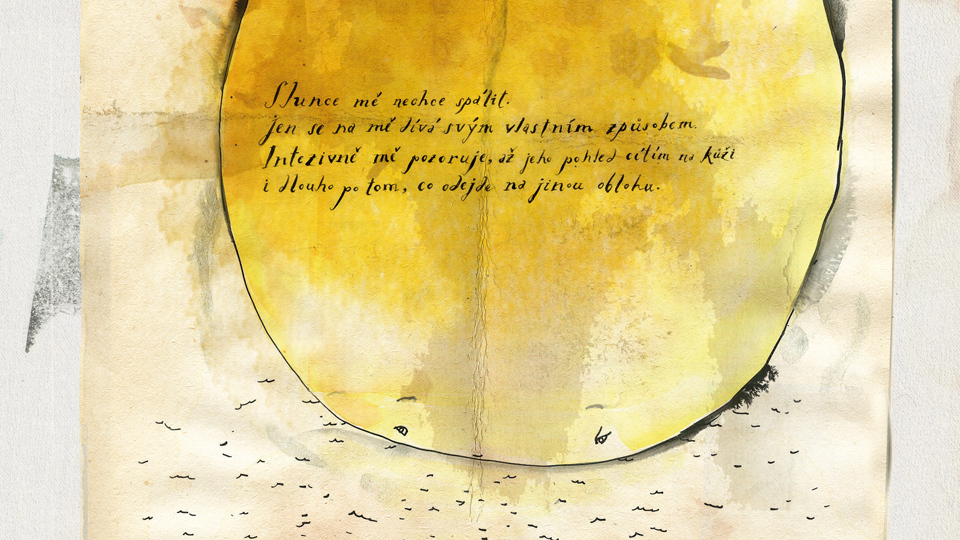 Slunce mě nechce spálit.
Jen se na mě dívá svým vlastním způsobem.
Intezivně mě pozoruje, až jeho pohled cítím na kůži
i dlouho po tom, co odejde na jinou oblohu.